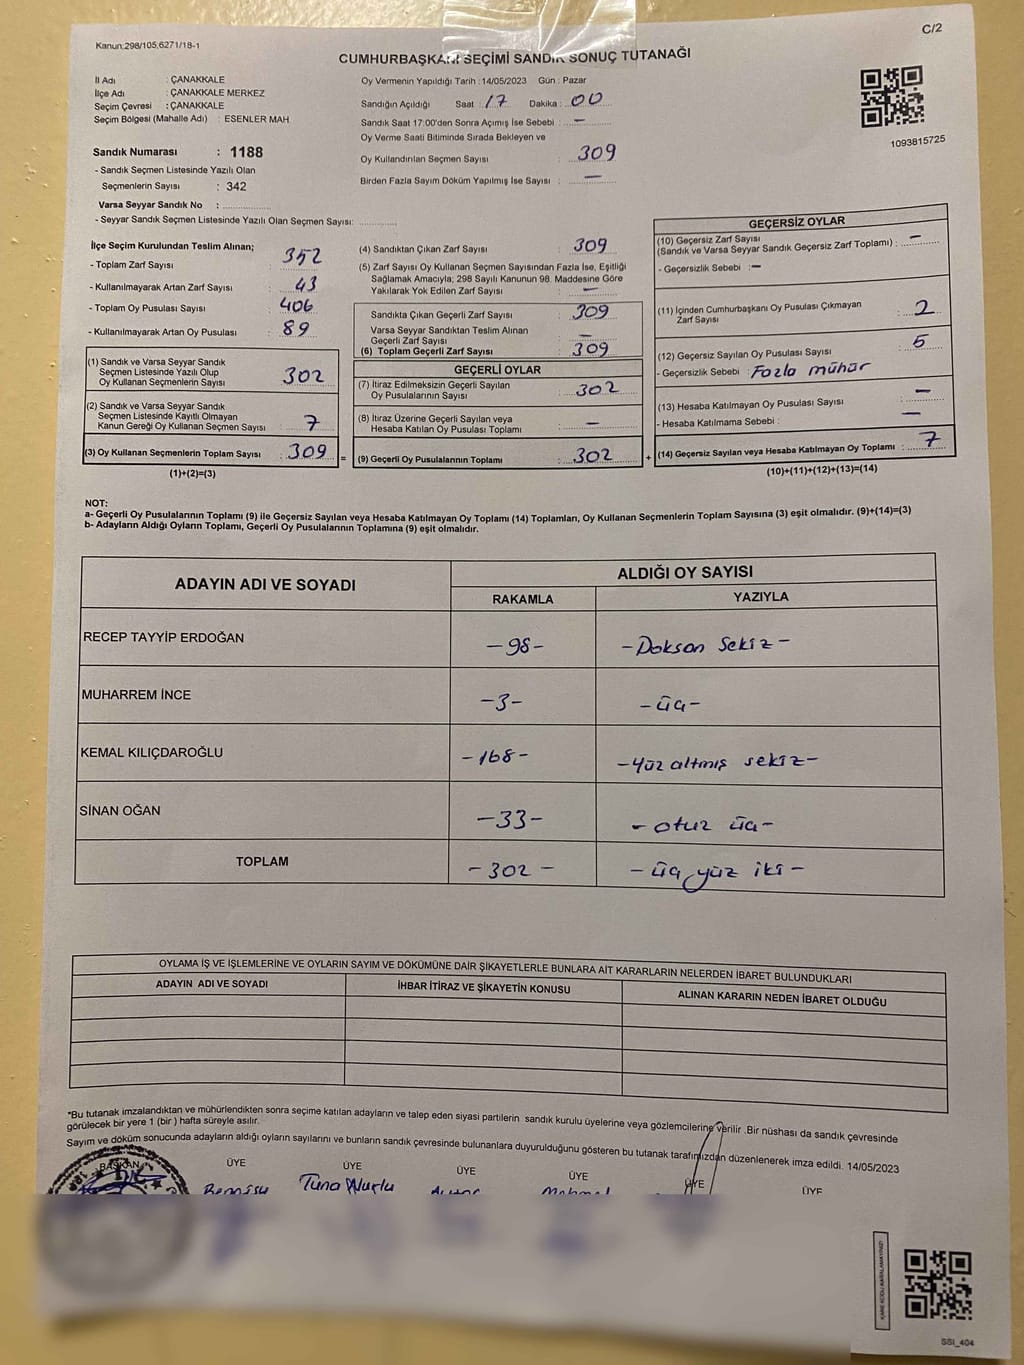 Kanun:298/105,6271/18-1
C/2
CUMHURBAŞKANI SEÇİMİ SANDIK SONUÇ TUTANAĞI
İl Adı : ÇANAKKALE
İlçe Adı : ÇANAKKALE MERKEZ
Seçim Çevresi : ÇANAKKALE
Seçim Bölgesi (Mahalle Adı) : ESENLER MAH
Sandık Numarası : 1188
- Sandık Seçmen Listesinde Yazılı Olan
Seçmenlerin Sayısı : 342
Varsa Seyyar Sandık No : ..............
- Seyyar Sandık Seçmen Listesinde Yazılı Olan Seçmen Sayısı: ............
Oy Vermenin Yapıldığı Tarih : 14/05/2023 Gün : Pazar
Sandığın Açıldığı Saat : 17 Dakika : 00
Sandık Saat 17:00'den Sonra Açımış İse Sebebi : —
Oy Verme Saati Bitiminde Sırada Bekleyen ve
Oy Kullandırılan Seçmen Sayısı : 309
Birden Fazla Sayım Döküm Yapılmış İse Sayısı : —
1093815725
İlçe Seçim Kurulundan Teslim Alınan;
- Toplam Zarf Sayısı 352
- Kullanılmayarak Artan Zarf Sayısı : 43
- Toplam Oy Pusulası Sayısı : 406
- Kullanılmayarak Artan Oy Pusulası : 89
(1) Sandık ve Varsa Seyyar Sandık
Seçmen Listesinde Yazılı Olup
Oy Kullanan Seçmenlerin Sayısı : 302
(2) Sandık ve Varsa Seyyar Sandık
Seçmen Listesinde Kayıtlı Olmayan
Kanun Gereği Oy Kullanan Seçmen Sayısı : 7
(3) Oy Kullanan Seçmenlerin Toplam Sayısı : 309 =
(1)+(2)=(3)
(4) Sandıktan Çıkan Zarf Sayısı : 309
(5) Zarf Sayısı Oy Kullanan Seçmen Sayısından Fazla İse, Eşitliği
Sağlamak Amacıyla; 298 Sayılı Kanunun 98. Maddesine Göre
Yakılarak Yok Edilen Zarf Sayısı : —
Sandıkta Çıkan Geçerli Zarf Sayısı : 309
Varsa Seyyar Sandıktan Teslim Alınan
Geçerli Zarf Sayısı : —
(6) Toplam Geçerli Zarf Sayısı : 309
GEÇERLİ OYLAR
(7) İtiraz Edilmeksizin Geçerli Sayılan
Oy Pusulalarının Sayısı : 302
(8) İtiraz Üzerine Geçerli Sayılan veya
Hesaba Katılan Oy Pusulası Toplamı : —
(9) Geçerli Oy Pusulalarının Toplamı : 302 +
GEÇERSİZ OYLAR
(10) Geçersiz Zarf Sayısı
(Sandık ve Varsa Seyyar Sandık Geçersiz Zarf Toplamı) : —
- Geçersizlik Sebebi : —
(11) İçinden Cumhurbaşkanı Oy Pusulası Çıkmayan
Zarf Sayısı : 2
(12) Geçersiz Sayılan Oy Pusulası Sayısı : 5
- Geçersizlik Sebebi : Fazla mühür
(13) Hesaba Katılmayan Oy Pusulası Sayısı : —
- Hesaba Katılmama Sebebi : —
(14) Geçersiz Sayılan veya Hesaba Katılmayan Oy Toplamı : 7
(10)+(11)+(12)+(13)=(14)
NOT:
a- Geçerli Oy Pusulalarının Toplamı (9) ile Geçersiz Sayılan veya Hesaba Katılmayan Oy Toplamı (14) Toplamları, Oy Kullanan Seçmenlerin Toplam Sayısına (3) eşit olmalıdır. (9)+(14)=(3)
b- Adayların Aldığı Oyların Toplamı, Geçerli Oy Pusulalarının Toplamına (9) eşit olmalıdır.
ADAYIN ADI VE SOYADI ALDIĞI OY SAYISI
RAKAMLA YAZIYLA
RECEP TAYYİP ERDOĞAN -98- -Doksan Sekiz-
MUHARREM İNCE -3- -üç-
KEMAL KILIÇDAROĞLU -168- -yüz altmış sekiz-
SİNAN OĞAN -33- -otuz üç-
TOPLAM -302- -üç yüz iki-
OYLAMA İŞ VE İŞLEMLERİNE VE OYLARIN SAYIM VE DÖKÜMÜNE DAİR ŞİKAYETLERLE BUNLARA AİT KARARLARIN NELERDEN İBARET BULUNDUKLARI
ADAYIN ADI VE SOYADI İHBAR İTİRAZ VE ŞİKAYETİN KONUSU ALINAN KARARIN NEDEN İBARET OLDUĞU
*Bu tutanak imzalandıktan ve mühürlendikten sonra seçime katılan adayların ve talep eden siyasi partilerin sandık kurulu üyelerine veya gözlemcilerine verilir .Bir nüshası da sandık çevresinde
görülecek bir yere 1 (bir ) hafta süreyle asılır.
Sayım ve döküm sonucunda adayların aldığı oyların sayılarını ve bunların sandık çevresinde bulunanlara duyurulduğunu gösteren bu tutanak tarafımızdan düzenlenerek imza edildi. 14/05/2023
BAŞKAN ÜYE ÜYE ÜYE ÜYE ÜYE ÜYE
Tuna
SSI_404